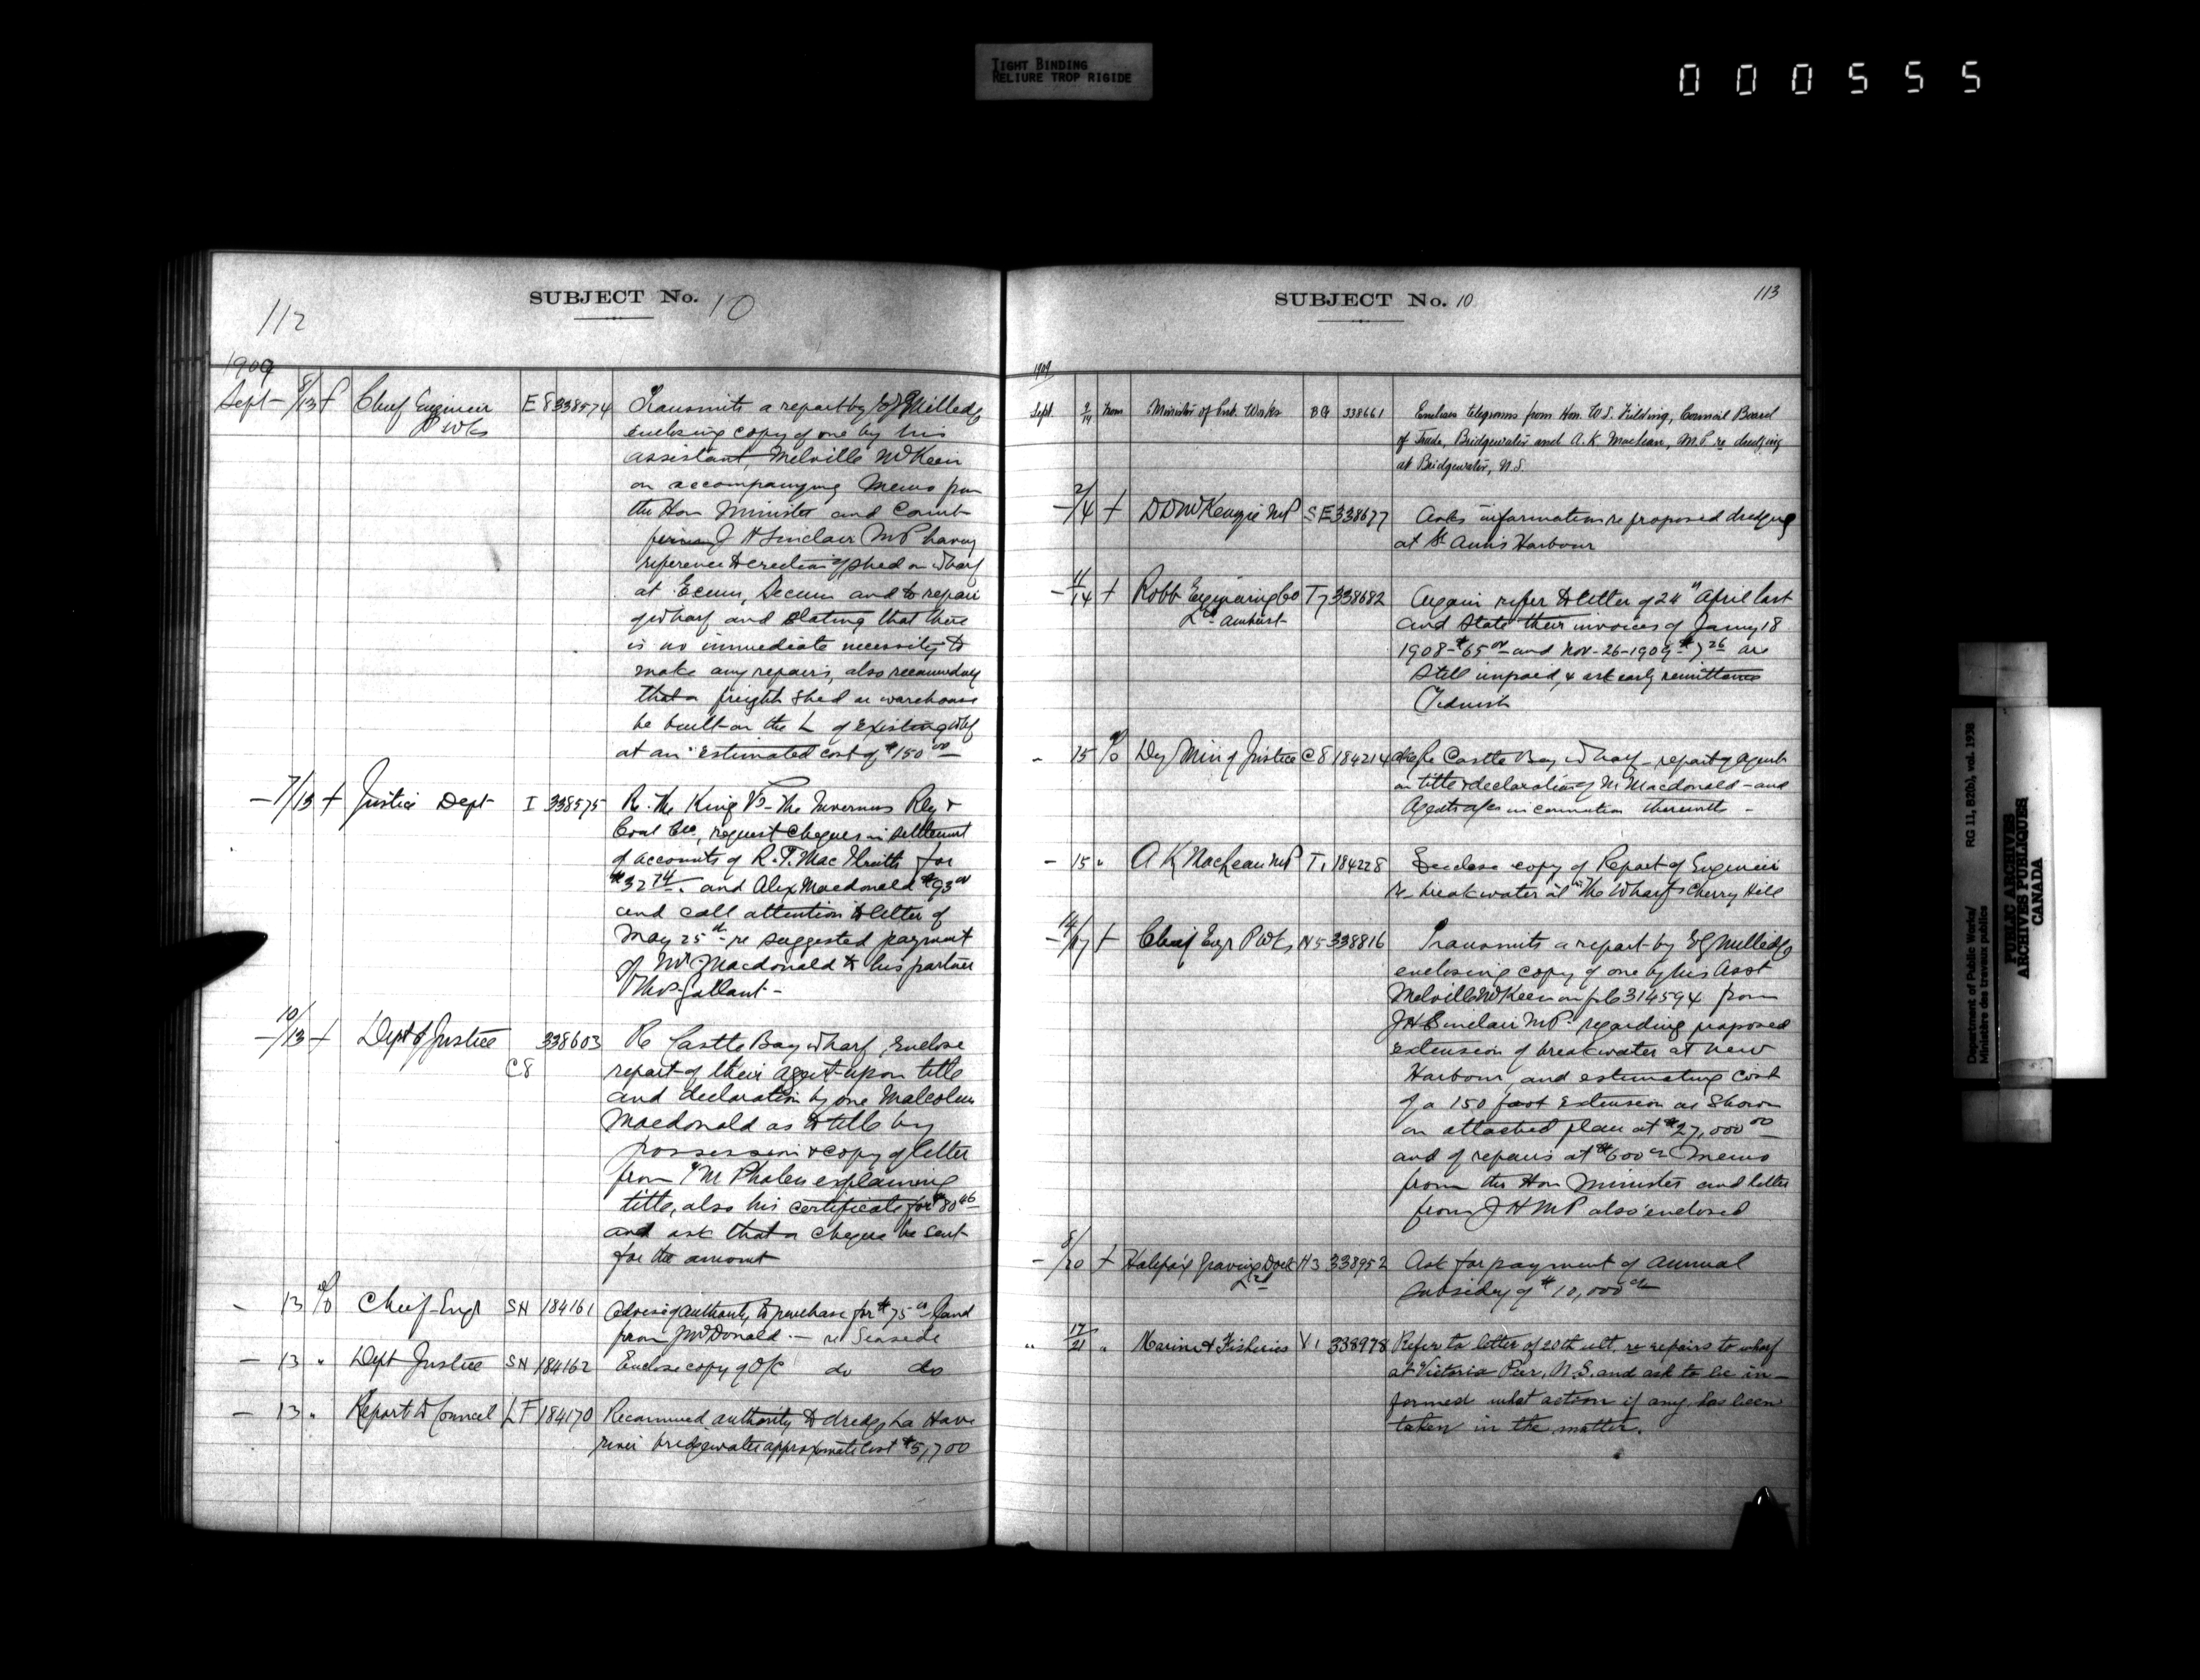 TIGHT BINDING
RELIURE TROP RIGIDE
000555
112
SUBJECT No. 10
1909
Sept - 8/13 f Chief Engineer E8 338574 Transmits a report by E G Milledge
P Wks enclosing copy of one by his
assistant, Melville McKeen
on accompanying Memo from
the Hon Minister and
J H Sinclair MP having
reference to erection of shed on wharf
at Ecum Secum and to repair
of wharf and stating that there
is no immediate necessity to
make any repairs, also recommending
that a freight shed or warehouse
be built on the L of existing whf
at an estimated cost of $150 00
- 7/13 f Justice Dept I 338575 Re. The King Vs The Inverness Rly &
Coal Co, request cheques in settlement
of accounts of R. T. MacIlreith for
$32 74. and Alex Macdonald $93 00
and call attention to letter of
May 25th - re suggested payment
of Mr Macdonald & his partner
Thos Gallant -
- 10/13 f Dept of Justice C8 338603 Re Castle Bay wharf, Enclose
report of their Agent upon title
and declaration by one Malcolm
Macdonald as to title by
possession & copy of letter
from Mr Phalen explaining
title, also his certificate for $80 46
and ask that a cheque be sent
for the amount
- 13 to Chief Engr SN 184161 Advise of authority to purchase for $75 00 land
from J McDonald - re Seaside
- 13 " Dept Justice SN 184162 Enclose copy of O/C do do
- 13 " Report to Council LF 184170 Recommend authority to dredge La Have
river bridgewater approximate cost $5,700
SUBJECT No. 10
113
1909
Sept. 9/14 from Minister of Pub. Works BG 338661 Encloses telegrams from Hon. W. S. Fielding, Council Board
of Trade, Bridgewater and A. K. Maclean, M.P. re dredging
at Bridgewater, N.S.
- 2/4 f D D McKenzie MP SE 338677 Asks information re proposed dredging
at St Anns Harbour
- 11/14 f Robb Engineering Co T7 338682 Again refer to letter of 24" April last
Ltd Amherst and state their invoices of Jany 18
1908 - $65 00 and Nov - 26 - 1909 - $7 26 are
still unpaid, & ask early remittance
Tidnish
- 15 to Dy Min of Justice C8 184214 Castle Bay wharf - report of agent
on title & declaration of M Macdonald - and
Agents a/c in connection therewith -
- 15 " A K MacLean MP T1 184228 Enclose copy of Report of Engineer
re breakwater at "The Wharf" Cherry Hill
- 14/17 f Chief Engr P Wks N5 338816 Transmits a report by E G Milledge
enclosing copy of one by his Asst
Melville McKeen on 314594 from
J H Sinclair MP. regarding proposed
extension of breakwater at New
Harbour, and estimating cost
of a 150 foot extension as shown
on attached plan at $27,000 00
and of repairs at $600 00 Memo
from the Hon Minister and letter
from J H MP also enclosed
- 8/20 f Halifax Graving Dock H3 338952 Ask for payment of annual
Ltd subsidy of $10,000 00
" 17/21 " Marine & Fisheries V1 338978 Refer to letter of 20th ult. re repairs to wharf
at Victoria Pier, N.S. and ask to be in-
formed what action if any has been
taken in the matter.
Department of Public Works/ RG 11, B2(b), vol. 1938
Ministère des travaux publics
PUBLIC ARCHIVES
ARCHIVES PUBLIQUES
CANADA